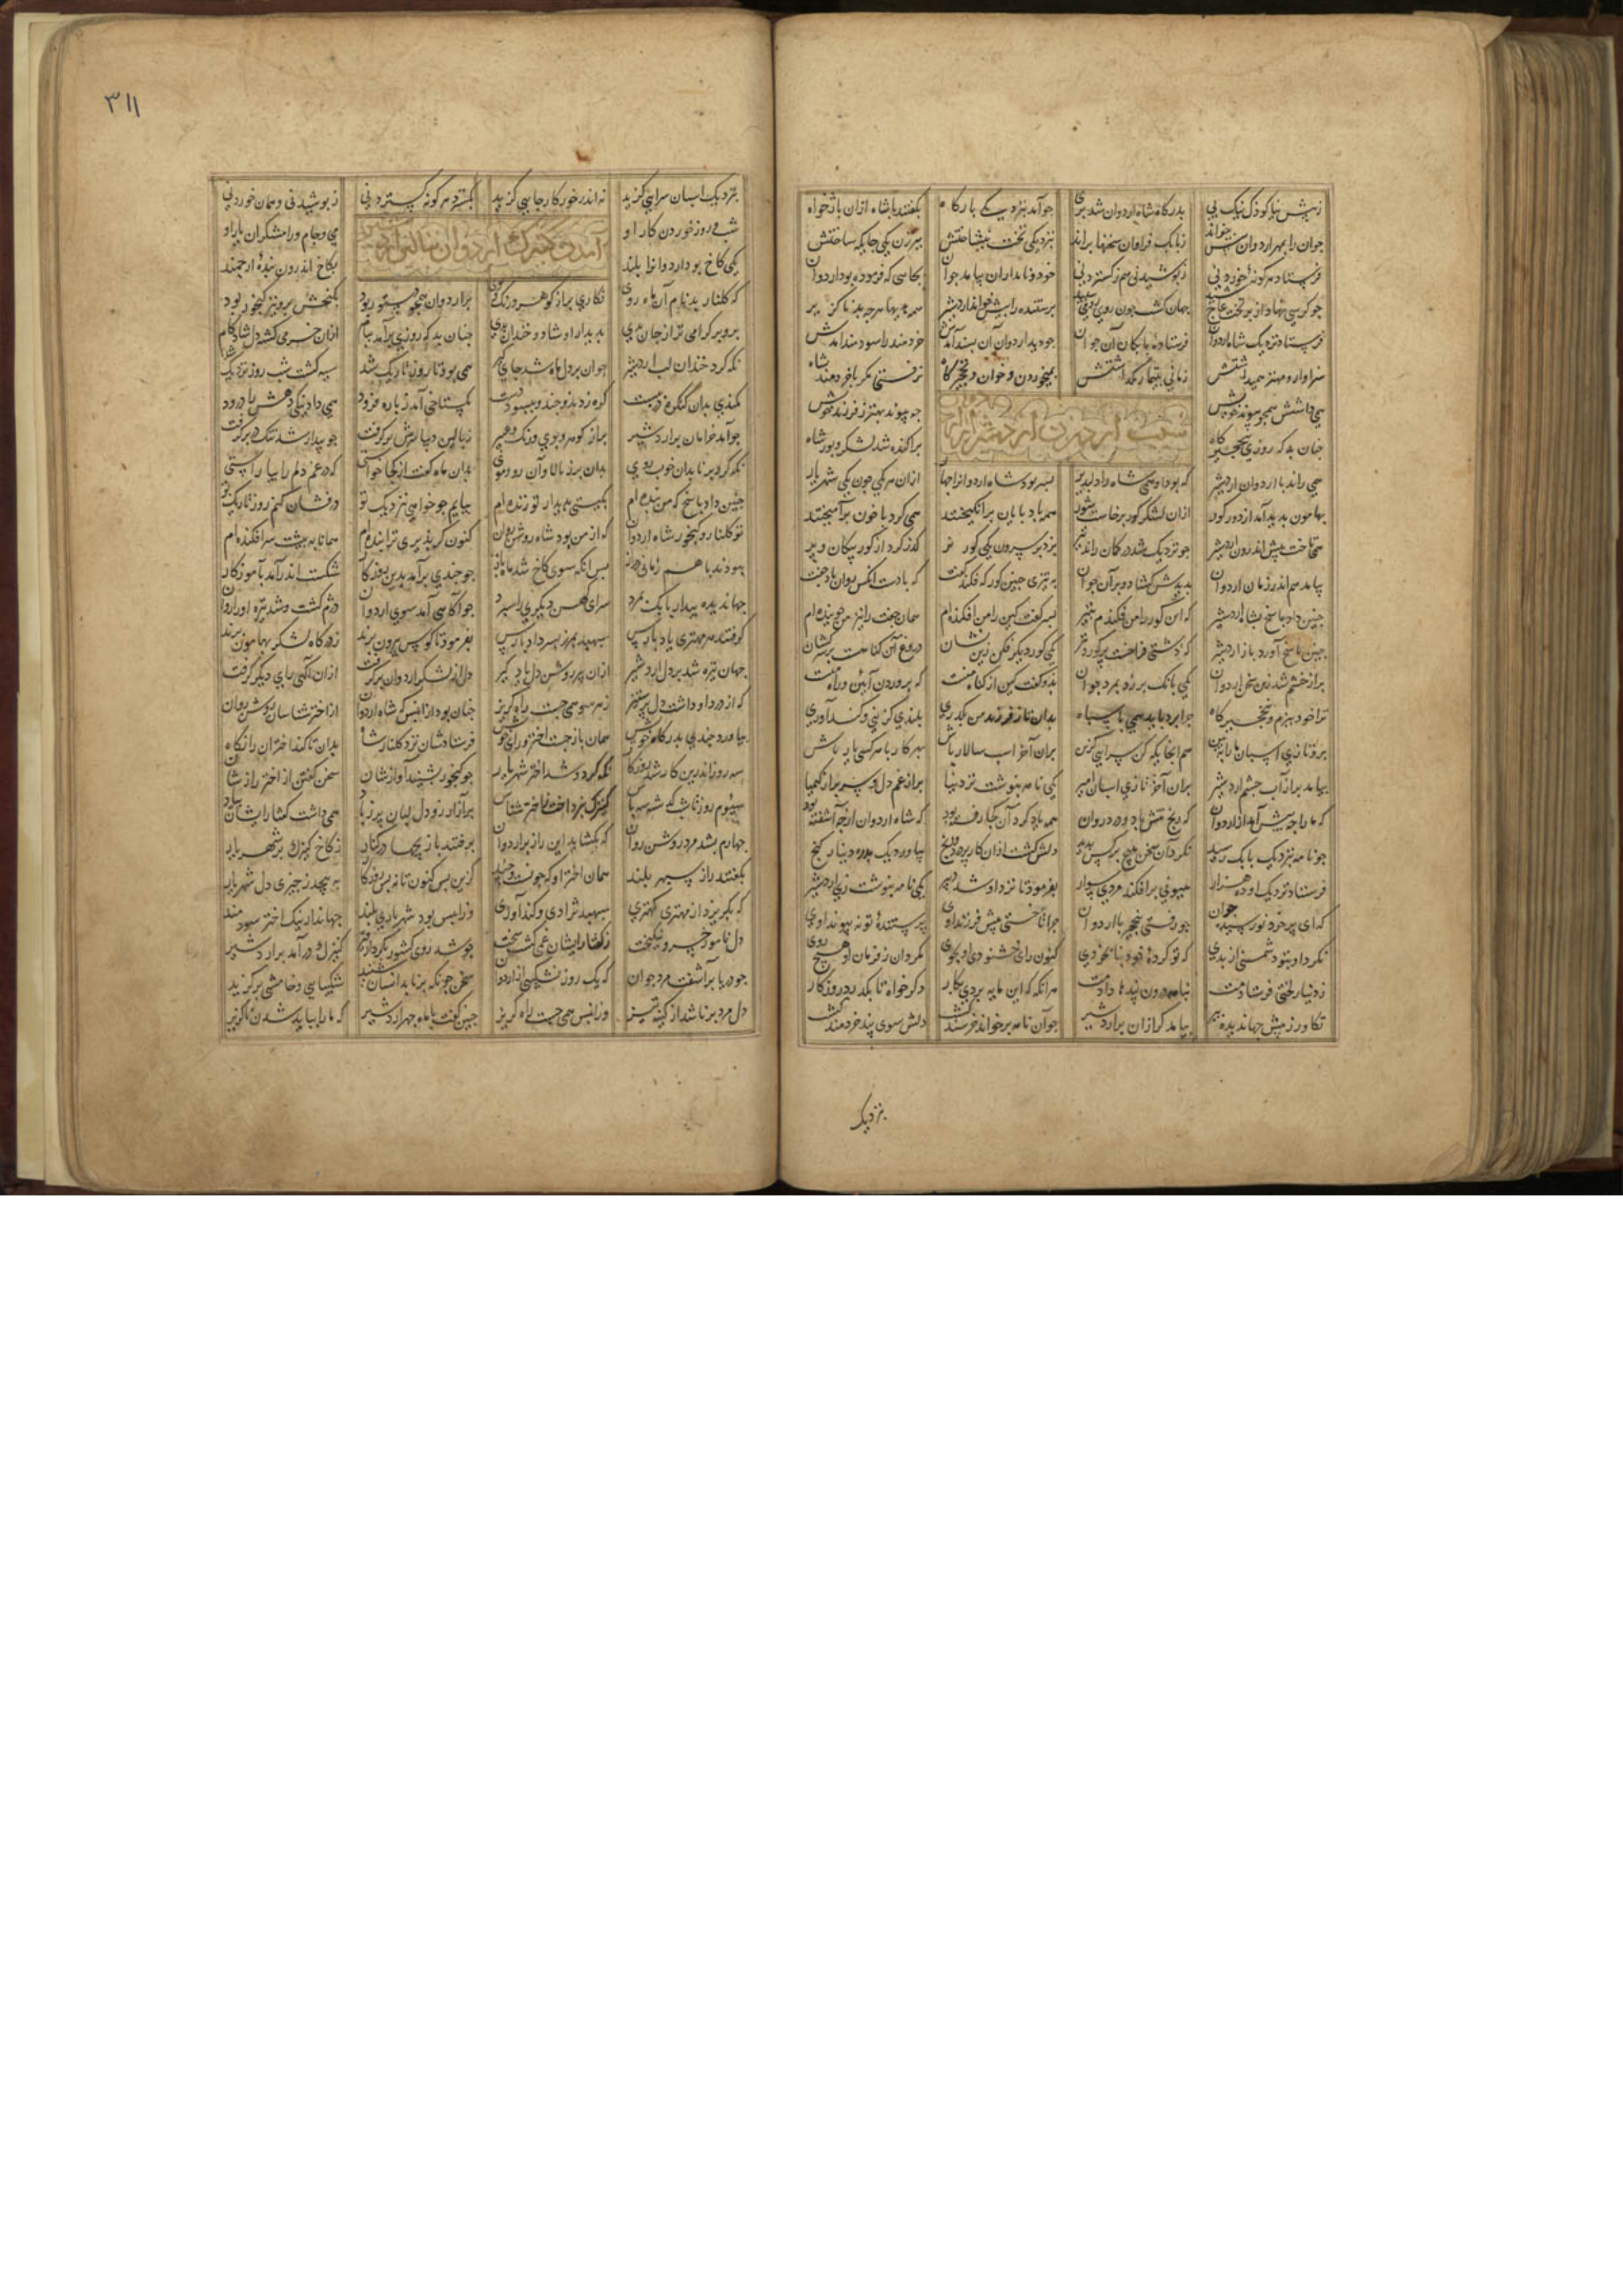 ز پیش نیا کودک نیک پی بدرگاه شاه اردوان شد بری جو آمد بنزدیکی بارکاه بکفتند با شاه ازان بازخواه
جوان را بمهر اردوان پیش خواند ز بابک فراوان سخنها براند بنزدیکی تخت بنشاختش ببرزن یکی جایکه ساختش
فرستاد هر کونهٔ خوردنی ز پوشیدنی هم ز کستردنی خود و نامداران بیامد جوان بجایی که فرموده بود اردوان
جو کرسی نهاد از بر تخت عاج شید جهان کشت جون روی رومی سپید پرستنده را پیش خواند اردشیر همه هدیها هرجه بد ناکزیر
فرستاد نزدیک شاه اردوان فرستاده بابکان آن جوان جو دید اردوان آن پسند آمدش خردمند را سودمند آمدش
سزاوار مهتر همیداشتش زمانی بتیمار نکذاشتش بمی خوردن و خوان و نخجیرکاه نرفتی مکر با خردمند شاه
همی داشتش همجو پیوند خویش جه پیوند بهتر ز فرزند خویش
جنان بد که روزی بنخجیرکاه براکنده شد لشکر و پور شاه
همی راند با اردوان اردشیر که بود او همی شاه را دلپذیر پسر بود شاه اردوانرا جهار ازان هر یکی جون یکی شهریار
بهامون پدید آمد از دور کور ازان لشکر کور برخاست شور همه بادپایان برانکیختند همی کرد با خون برآمیختند
همی تاخت پیش اندرون اردشیر جو نزدیک شد در کمان راند تیر بزد بر سرون یکی کور نر کذر کرد از کور پیکان و پر
بیامد هم اندر زمان اردوان بدیدش کشاد و بر آن جوان به تیری جنین کور که فکند کفت که با دست آنکس روان باد جفت
جنین داد پاسخ بشاه اردشیر که این کور را من فکندم بتیر پسر کفت کین را من افکنده ام همان جفت را نیز من جوینده ام
جنین پاسخ آورد باز اردشیر که دشتی فراخست پر کور و تیر یکی کور دیکر فکن زین نشان دروغ آن کناهست بر سرکشان
پر از خشم شد زین سخن اردوان یکی بانک بر زد بمرد جوان بدو کفت کین از کناه منست که پروردن آیین و راه منست
ترا خود ببزم و نخجیرکاه جرا برد باید همی با سپاه بدان تا ز فرزند من بکذری بلندی کزینی و کنداوری
برو تازی اسپان ما را ببین هم انجایکه کن سرایی کزین بران آخر اسب سالار باش بهر کار با هر کسی یار باش
بیامد پر از آب جشم اردشیر بران آخر تازی اسبان امیر یکی نامه بنوشت نزد نیا پر از غم دل و سر پر از کیمیا
که ما را جه پیش آمد از اردوان که رنج تنش باد و درد روان همه یاد کرد آن کجا رفته بود که شاه اردوان از جه آشفته بود
جو نامه بنزدیک بابک رسید نکرد آن سخن هیج بر کس پدید دلش کشت ازان کار پر درد و رنج بیاورد یک بدره دینار کنج
فرستاد نزدیک او ده هزار هیونی برافکند مردی سوار بفرمود تا نزد او شد دبیر یکی نامه بنوشت زی اردشیر
که ای پر خرد نورسیده جوان جو رفتی بنخجیر با اردوان جرا تاختی پیش فرزند اوی پرستندهٔ تو نه پیوند اوی
نکرد او بتو دشمنی از بدی که تو کردهٔ خود کنون رای خشنودی او بجوی مکردان ز فرمان او هیج روی
ز دینار لختی فرستادمت بنامه درون پندها دادمت هرانکه که این مایه بردی بکار دکر خواه تا بکذرد روزکار
تکاور ز پیش جهاندیده پیر بیامد کرازان بر اردشیر جو آن نامه برخواند خرسند کشت دلش سوی پند خردمند کشت
بنزدیک
۳۱۱
بنزدیک اسبان سرایی کزید نه اندر خور کار جایی کزید بکسترد هر کونه کستردنی ز پوشیدنی و همان خوردنی
شب و روز خوردن کار او می و جام و رامشکران یار او
آمدن کنیزک اردوان
یکی کاخ بود اردوانرا بلند بکاخ اندرون بندهٔ ارجمند
که کلنار بد نام آن ماه روی نکاری پر از کوهر و رنک و بوی بر اردوان همجو دستور بود بکنجش بر و نیز کنجور بود
برو بر کرامی تر از جان بدی بدیدار او شاد و خندان بدی جنان بد که روزی برآمد ببام ازان خرمی کشت دل شادکام
نکه کرد خندان لب اردشیر جوان بر دل ماه شد جای کیر همی بود تا روز تاریک شد سیه کشت شب روز نزدیک شد
کمندی بدان کنکره در ببست کره زد بدو جند و ببسود دست بکستاخی آمد ز باره فرود همی داد نیکی دهش را درود
جو آمد خرامان بر اردشیر پر از کوهر و بوی و رنک و عبیر ز بالین دیبا سرش برکرفت جو بیدار شد تنک در بر کرفت
نکه کرد برنا بدان خوب روی بدان برز بالا و آن رنک و موی بدان ماه کفت از کجا خواستی که در غم دلم را بیاراستی
جنین داد پاسخ که من بنده ام بکیتی بدیدار تو زنده ام بیایم جو خواهی نزدیک تو درفشان کنم روز تاریک تو
تو کلنار و کنجور شاه اردوان که از من بود شاه روشن روان کنون کر پذیری ترا بنده ام همانا به پیشت سر افکنده ام
ببودند با هم زمانی دراز پس آنکه سوی کاخ شد ماه باز جو جندی برآمد بدین روزکار شکست اندر آمد بآموزکار
جهاندیده بیدار بابک بمرد سرای کهن دیکری را سپرد جو آکاهی آمد سوی اردوان دژم کشت و شد تیره او را روان
کرفتند هر مهتری یاد پارس سپهبد بمهتر پسر داد پارس بفرمود تا کوس بیرون برند ز درکاه لشکر بهامون برند
جهان تیره شد بر دل اردشیر ازان پیر روشن دل یادکیر دل از لشکر اردوان برکرفت ازان آکهی رای دیکر کرفت
که از درد او داشت دل پرستیز ز هر سو همی جست راه کریز جنان بود از انپس که شاه اردوان از اختر شناسان روشن روان
بیاورد جندی بدرکاه خویش همان باز جست اختر و رای خویش فرستادشان نزد کلنار شاه بدان تا کنند اختران را نکاه
سه روز اندرین کار شد روزکار نکه کرد و شد اختر شهریار جو کنجور بشنید آوازشان سخن کفتن از اختر و رازشان
سیوم روز تا شب سه پاس کنیزک بپرداخت ز اختر شناس پر از آرزو دل لبان پر ز باد همی داشت کفتار ایشان بیاد
جهارم بشد مرد روشن روان که بکشاید این راز بر اردوان برفتند با زیجها در کنار ز کاخ کنیزک بر شهریار
بکفتند راز سپهر بلند همان اختر او که جونست و جند کزین پس کنون تا نه بس روزکار به پیجد ز جیزی دل شهریار
که بکریزد از مهتری کهتری سپهبد نژادی و کنداوری وزانپس بود شهریاری بلند جهاندار نیک اختر سودمند
دل نامور خسرو نیکبخت ز کفتار ایشان غمی کشت سخت جو شد روی کشور بکردار قیر کنیزک درآمد بر اردشیر
جو دریا برآشفت مرد جوان که یک روز نشکیبی از اردوان سخن جونکه برنا بد انسان شنید شکیبایی و خامشی برکزید
دل مرد برنا شد از کینه تیز وزانپس همی جست راه کریز جنین کفت با ماه جهر اردشیر که ما را بباید شدن ناکزیر